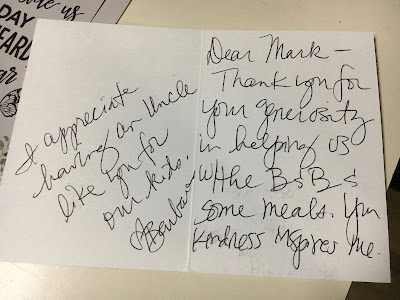 us
DAY
HEARD
Dear Mark —
Thank you for
your generosity
in helping us
w/the B&B &
some meals. Your
kindness inspires me.
I appreciate
having an Uncle
like you for
our kids.